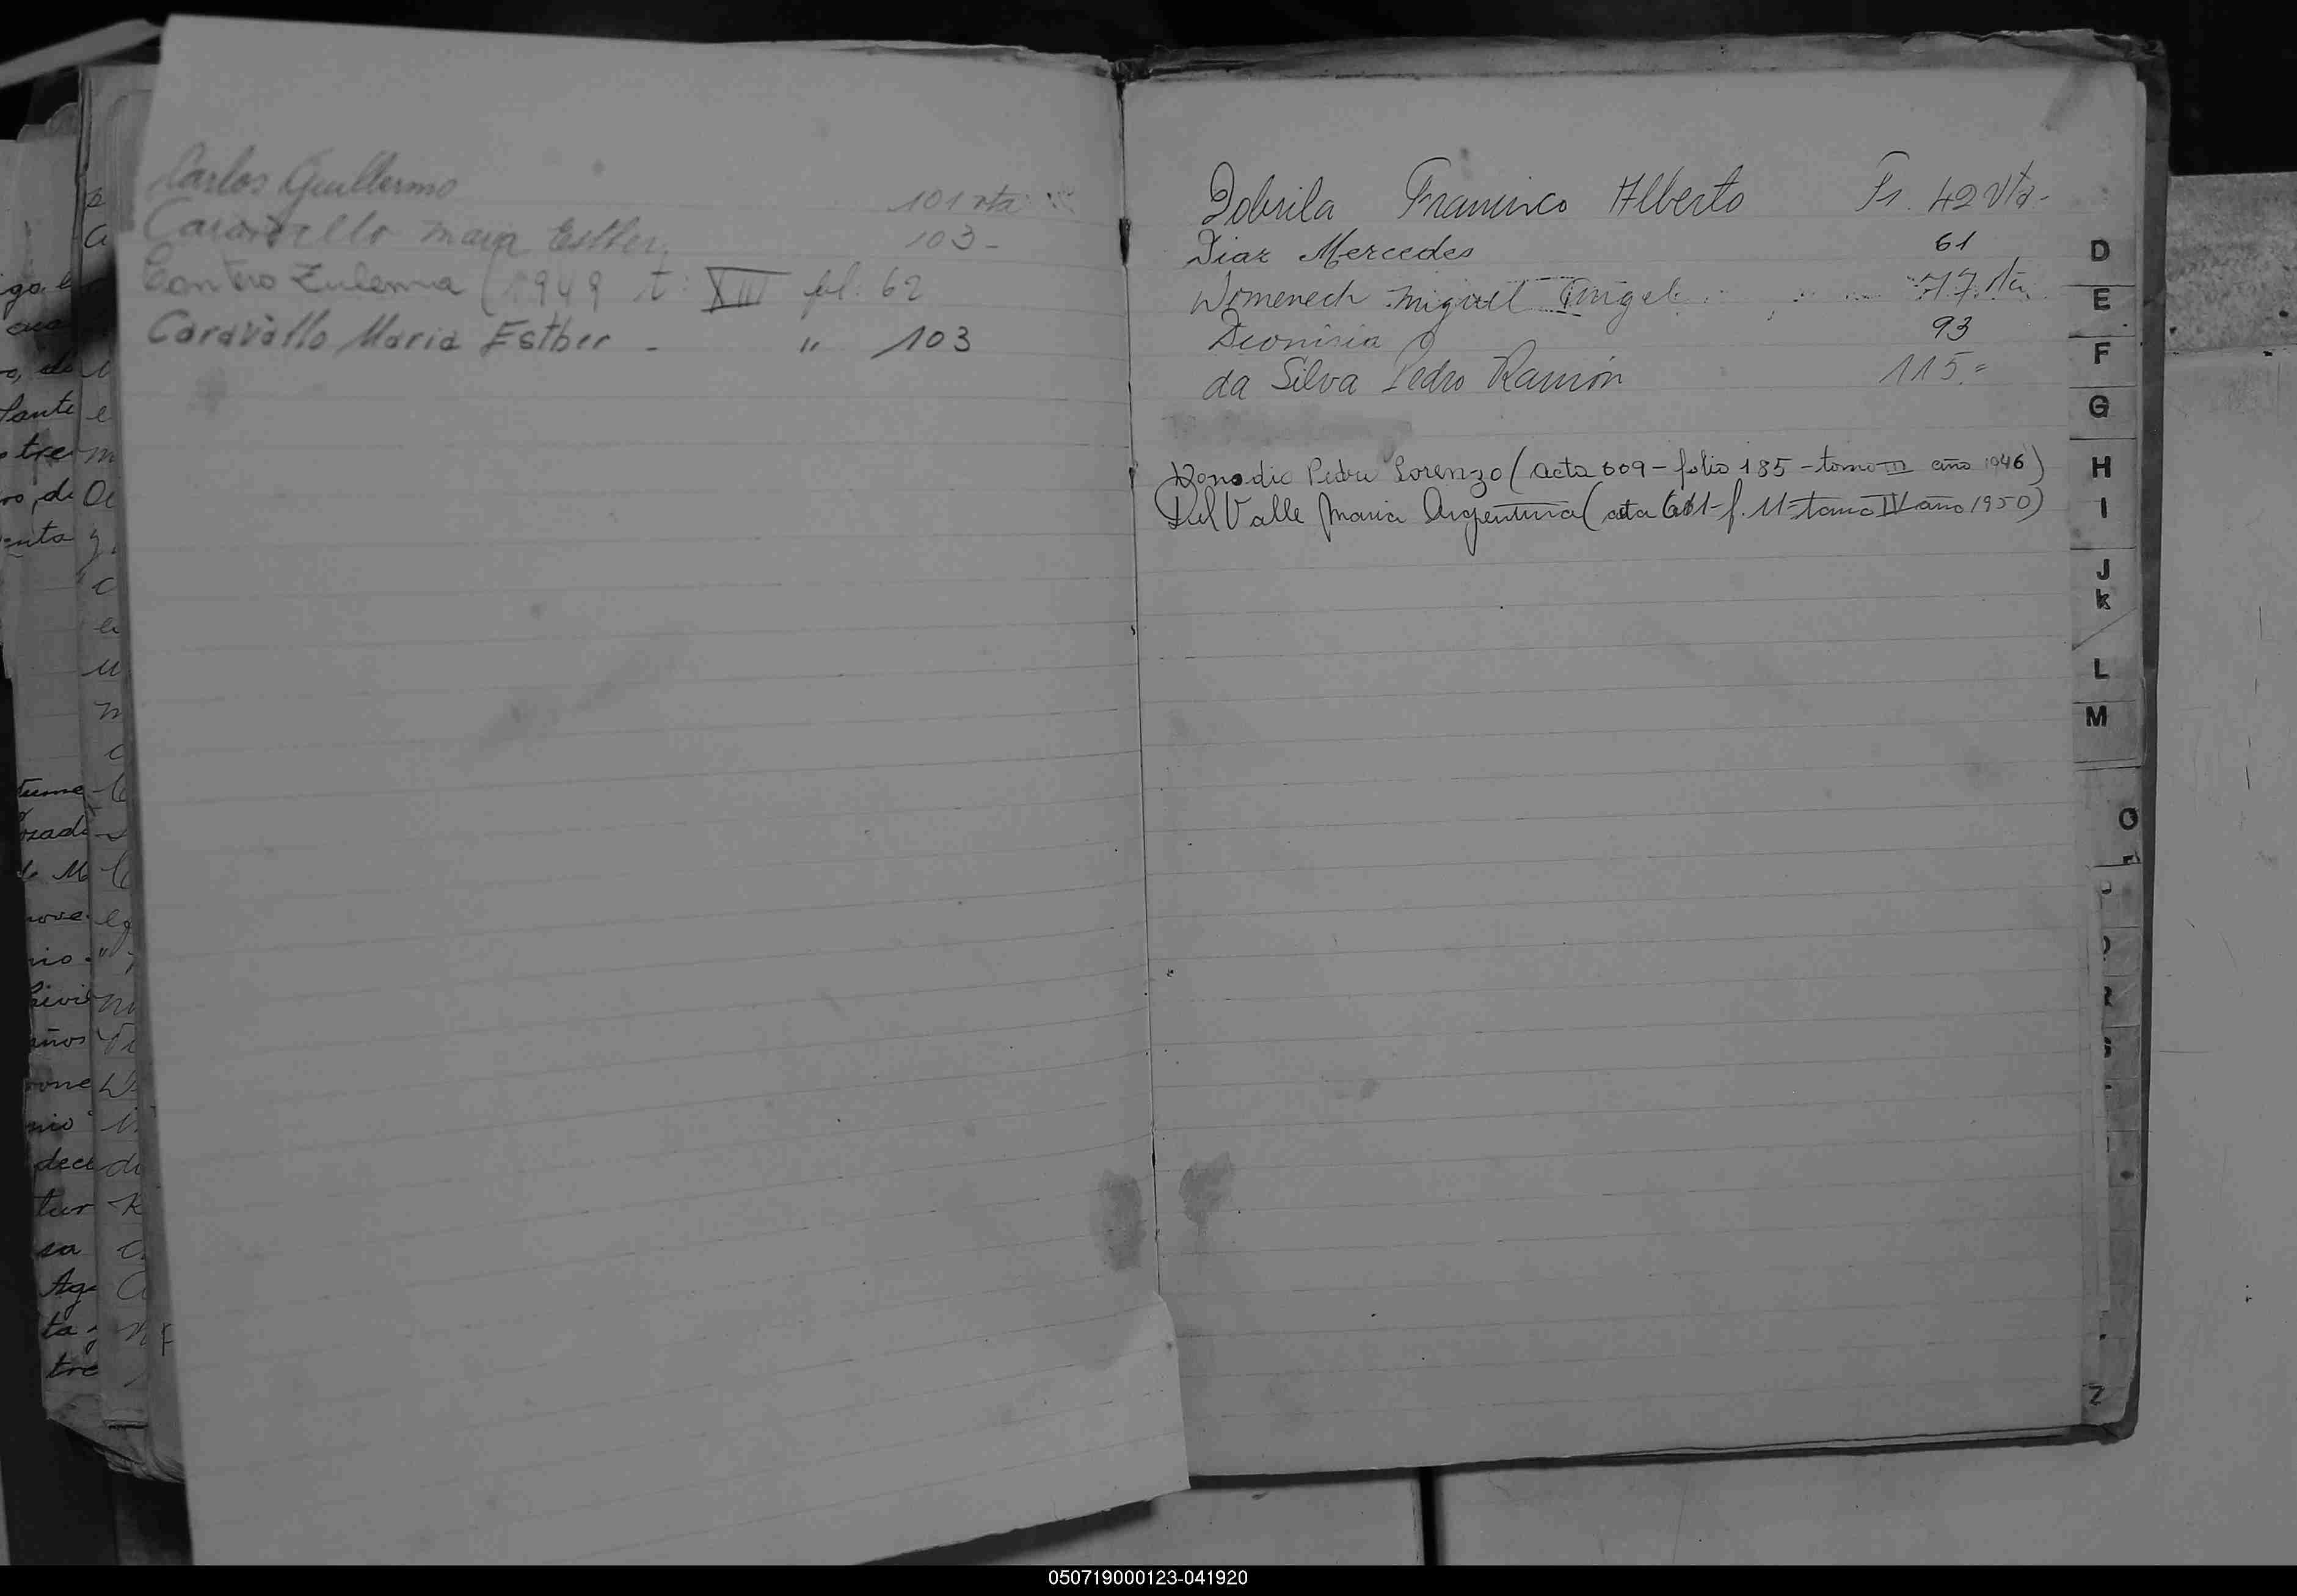 Carlos Guillermo 101 vta
Caravallo Maria Esther 103-
Cantero Zulema (1949 t: XIII fol. 62
Caravallo Maria Esther - " 103
Dobrila Francisco Alberto Fs. 42 Vta-
Diaz Mercedes 61
Domenech Miguel Angel 77 vta
Dionisia 93
da Silva Pedro Ramón 115.=
Donadio Pedro Lorenzo (acta 609 - folio 185 - tomo III año 1946)
Del Valle Maria Argentina (acta - f. 11 - tomo IV año 1950)
D
E
F
G
H
I
J
K
L
M
O
Z
go
cuo
o, de
tante
tre
ro, de
enta
nove
nio
años
nio
tur
sa
Ag
ta y
tre
050719000123-041920